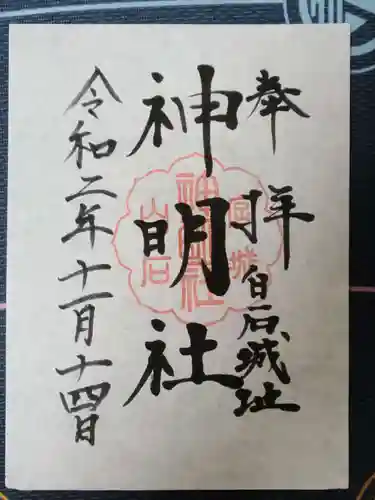 奉拝
白石城址
神明社
宮城
神明社
白石
令和二年十一月十四日